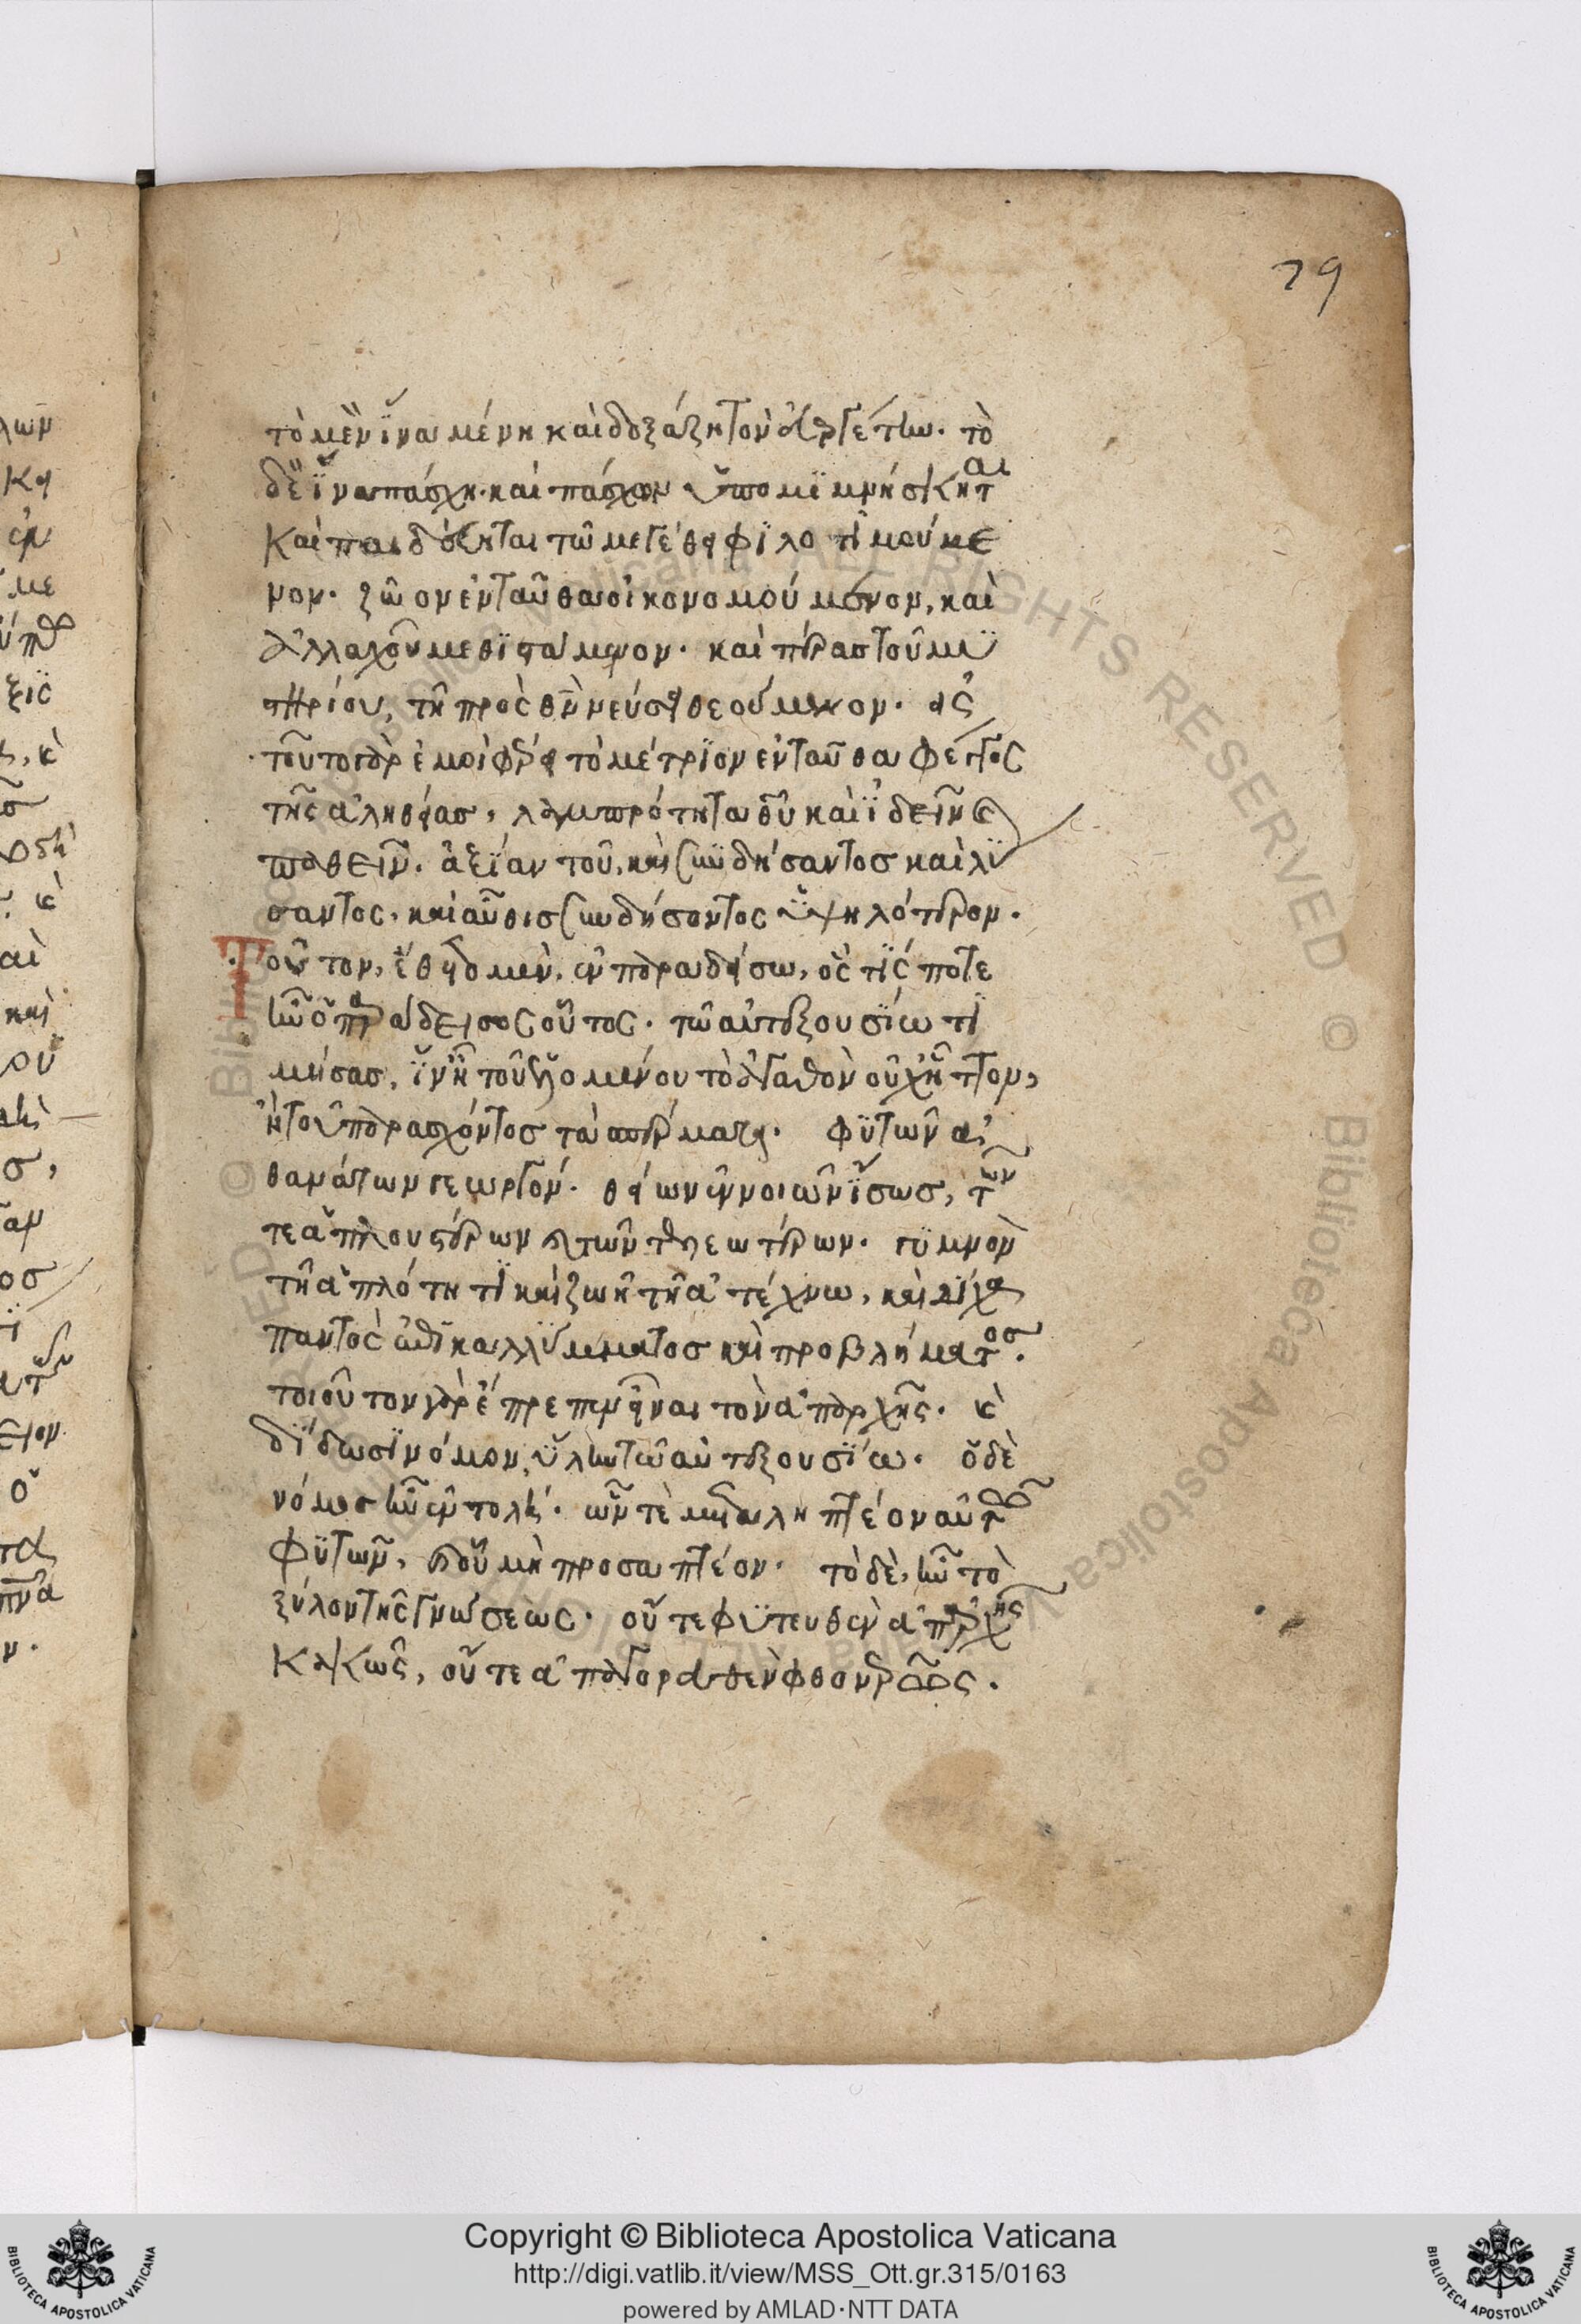 79
τὸ μὲν ἵνα μένη καὶ δοξάζη τὸν εὐεργέτην· τὸ
δὲ ἵνα πάσχη· καὶ πάσχων ὑπομιμνήσκηται
καὶ παιδεύηται τῶ μεγέθει φιλοτιμούμε
νον· ζῶον ἐνταῦθα οἰκονομούμενον, καὶ
ἀλλαχοῦ μεθιστάμενον· καὶ πέρας τοῦ μυ
στηρίου, τῆ πρὸς θν νεύσει θεούμενον· εἰς
τοῦτο γὰρ ἐμοὶ φέρει τὸ μέτριον ἐνταῦθα φέγγος
τῆς ἀληθείας, λαμπρότητα θυ καὶ ἰδεῖν κ
παθεῖν· ἀξίαν τοῦ, καὶ συνδήσαντος καὶ λύ
σαντος, καὶ αὖθις συνδήσοντος ὑψηλότερον·
Τοῦτον, ἔθετο μὲν, ἐν παραδείσω, ὅς τίς ποτε
ἦν ὁ παράδεισος οὗτος· τῶ αὐτεξουσίω τι
μήσας, ἵν' ἦ τοῦ ἑλομένου τὸ ἀγαθὸν οὐχ ἧττον,
ἢ τοῦ παρασχόντος τὰ σπέρματα· φυτῶν ἀ
θανάτων γεωργόν· θείων ἐννοιῶν ἴσως, τῶν
τε ἁπλουστέρων καὶ τῶν τελεωτέρων· γυμνὸν
τῆ ἁπλότητι καὶ ζωῆ τῆ ἀτέχνω, καὶ δίχα
παντὸς ἐπικαλύμματος καὶ προβλήματος·
τοιοῦτον γὰρ ἔπρεπεν εἶναι τὸν ἀπαρχῆς· κ
δίδωσι νόμον, ὕλην τῶ αὐτεξουσίω· ὁ δὲ
νόμος ἦν ἐντολή· ὧν τὲ μεταληπτέον αὐτῶ
φυτῶν, καὶ οὗ μὴ προσαπτέον· τὸ δὲ, ἦν τὸ
ξύλον τῆς γνώσεως· οὔτε φυτευθὲν ἀπαρχῆς
κακῶς, οὔτε ἀπαγορευθὲν φθονερῶς·
λων
Copyright © Biblioteca Apostolica Vaticana
http://digi.vatlib.it/view/MSS_Ott.gr.315/0163
powered by AMLAD·NTT DATA
BIBLIOTECA APOSTOLICA VATICANA
BIBLIOTECA APOSTOLICA VATICANA